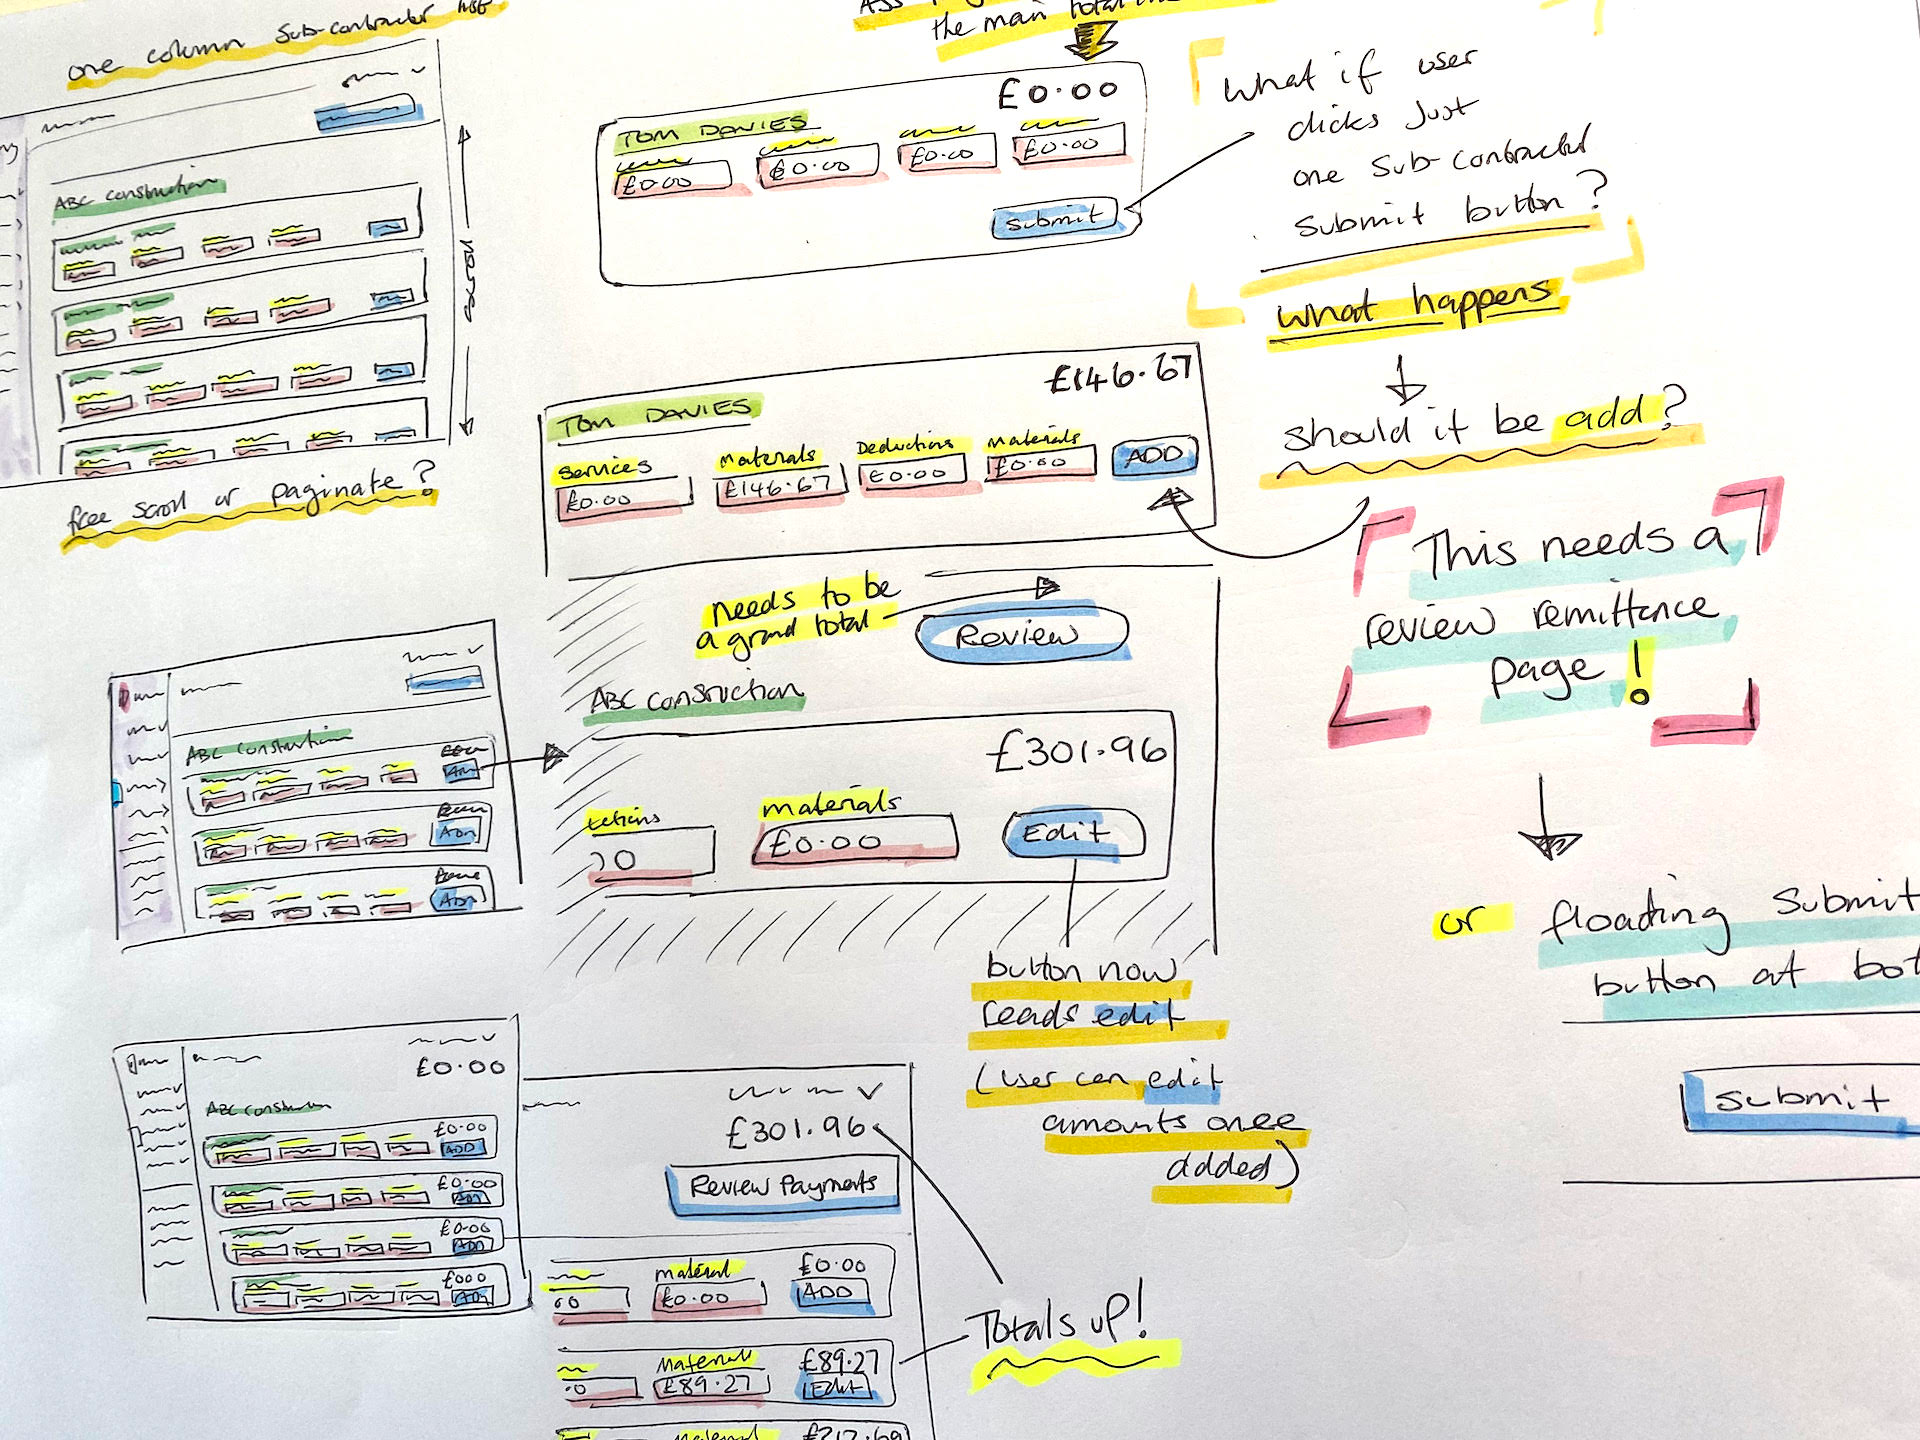 one column sub-contractor list
ABC construction
scroll
free scroll or paginate?
the main total
£0.00
TOM DAVIES
£0.00
£0.00
£0.00
£0.00
submit
What if user
clicks just
one sub-contractor
submit button?
what happens
should it be add?
£146.67
TOM DAVIES
services
materials
Deductions
materials
£0.00
£146.67
£0.00
£0.00
ADD
This needs a
review remittence
page!
needs to be
a grand total
Review
ABC Consruction
£301.96
materials
£0.00
Edit
button now
reads edit
(user can edit
amounts once
added)
ABC Construction
ADD
ADD
or floating submit
button at bot
submit
£0.00
ABC Construction
£0.00
ADD
£0.00
ADD
£0.00
ADD
£000
ADD
£301.96
Review Payments
material
£0.00
£0.00
ADD
Totals up!
Materials
£89.27
£89.27
Edit
Material
£212.69